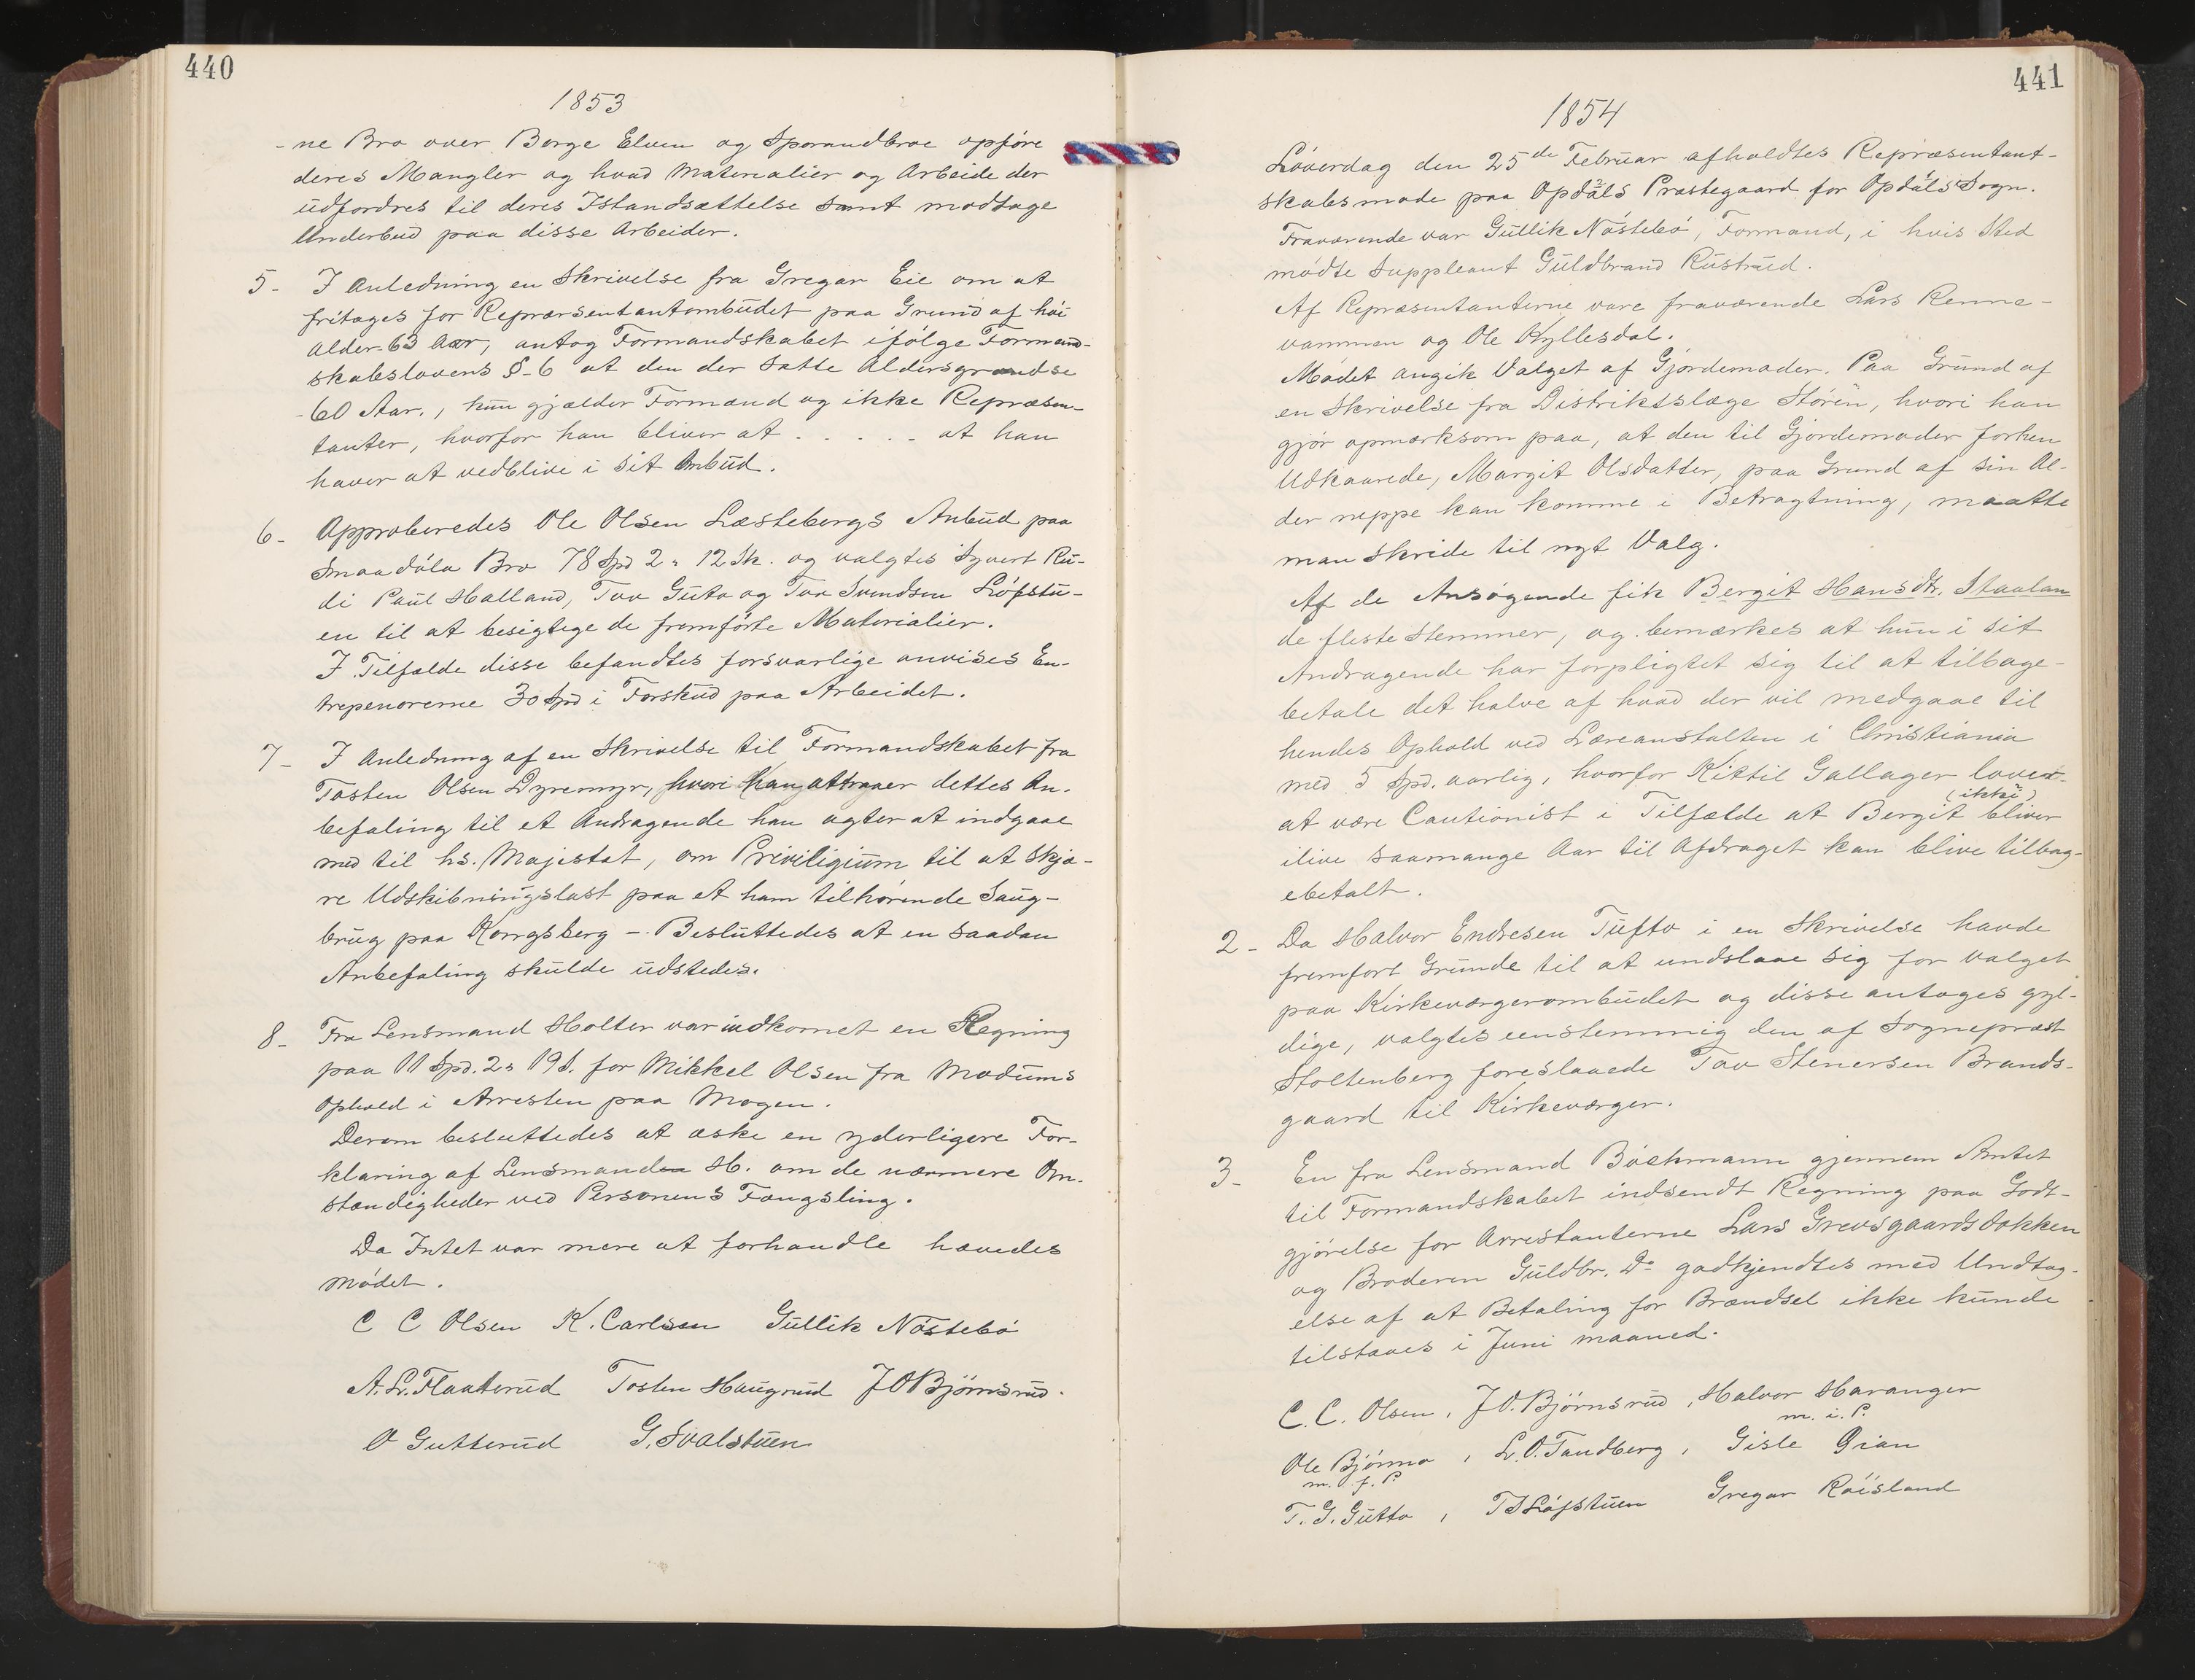 440
1853
-ne Bro over Borge Elven og Sporandbroe opføre
deres Mangler og hvad Materialier og Arbeide der
udfordres til deres Istandsættelse samt modtage
Underbud paa disse Arbeider.
5- I Anledning en Skrivelse fra Gregar Eie om at
fritages for Repræsentantombudet paa Grund af høi
Alder 63 Aar, antog Formandskabet ifølge Formand-
skabslovens §-6 at den der satte Aldersgrændse
-60 Aar., kun gjælder Formænd og ikke Repræsen-
tanter, hvorfor han bliver at . . . . . at han
haver at vedblive i sit Ombud.
6- Approberedes Ole Olsen Læstebergs Anbud paa
Smaadøla Bro 78 Spd 2 " 12 Sk. og valgtes Syvert Ru-
di Paul Halland, Tov Guto og Tov Svendsen Løfstu-
en til at besigtige de fremførte Materialier.
I Tilfælde disse befandtes forsvarlige anvises En-
trepenorerne 30 Spd i Forskud paa Arbeidet.
7- I Anledning af en Skrivelse til Formandskabet fra
Tosten Olsen Dyremyr, hvori han attraaer dettes An-
befaling til et Andragende han agter at indgaae
med til hs. Majestæt, om Priviligium til at Skjæ-
re Udskibningslast paa et ham tilhørende Saug-
brug paa Kongsberg -. Besluttedes at en saadan
Anbefaling skulde udstedes.
8- Fra Lensmand Holter var indkomet en Regning
paa 11 Spd. 2 " 19 S. for Mikkel Olsen fra Modums
Ophold i Arresten paa Mogen.
Derom besluttedes at æske en yderligere For-
klaring af Lensmanden H. om de nærmere Om-
stændigheder ved Personens Fængsling.
Da Intet var mere at forhandle hævedes
Mødet.
C C Olsen K. Carlsen Gullik Nøstebø
A. L. Flaaterud Tosten Haugrud J O Bjørnsrud.
O Gutterud G. Svalstuen
441
1854
Løverdag den 25de Februar afholdtes Repræsentant-
skabsmøde paa Opdals Præstegaard for Opdals Sogn.
Fraværende var Gullik Nøstebø, Formand, i hvis Sted
mødte Suppleant Guldbrand Rustrud.
Af Repræsentanterne vare fraværende Lars Renne-
vammen og Ole Kyllesdal.
Mødet angik Valget af Gjordemoder. Paa Grund af
en Skrivelse fra Distriktslæge Støren, hvori han
gjør opmærksom paa, at den til Gjordemoder forhen
Udkaarede, Margit Olsdatter, paa Grund af sin Al-
der neppe kan komme i Betragtning, maatte
man skride til nyt Valg.
Af de Ansøgende fik Bergit Hansdtr. Staalan
de fleste Stemmer, og bemærkes at hun i sit
Andragende har forpligtet sig til at tilbage-
betale det halve af hvad der vil medgaae til
hendes Ophold ved Læreanstalten i Christiania
med 5 Spd. aarlig, hvorfor Kittil Gallager lover
at være Cautionist i Tilfælde at Bergit (ikke) bliver
ilive saamange Aar til Afdraget kan blive tilbag-
ebetalt.
2- Da Halvor Endresen Tufto i en Skrivelse havde
fremført Grunde til at undslaae sig for valget
paa Kirkeværgerombudet og disse antoges gyl-
dige, valgtes eenstemmig den af Sognepræst
Stoltenberg foreslaaede Tov Stenersen Brands-
gaard til Kirkeværger.
3- En fra Lensmand Bøckmann gjennem Amtet
til Formandskabet indsendt Regning paa Godt-
gjørelse for Arrestanterne Lars Grevsgaards dokken
og Broderen Guldbr. Do godkjendtes med Undtag-
else af at Betaling for Brændsel ikke kunde
tilstaaes i Juni maaned.
C. C. Olsen, J O. Bjørnsrud, Halvor Haranger
m. i. P.
Ole Bjønno, L. O. Tandberg, Gisle Qian
m. f. P.
T. G. Gutto, T S Løfstuen Gregar Røisland